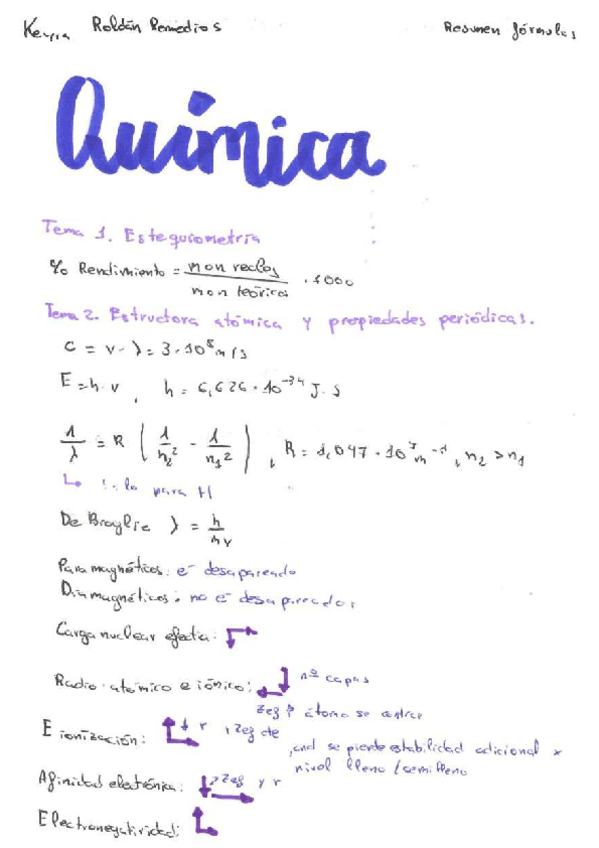 Keyra Roldán Remedios Resumen fórmulas
Química
Tema 1. Estequiometría
% Rendimiento = mon reales / mon teóricos · 1000
Tema 2. Estructora atómica y propiedades periódicas.
C = ν · λ = 3 · 10⁸ m/s
E = h · ν , h = 6,626 · 10⁻³⁴ J · S
1/λ = R (1/n₂² - 1/n₁²) , R = 1,097 · 10⁷ m⁻¹ , n₂ > n₁
↳ para H
De Broglie λ = h/mv
Paramagnéticos: e⁻ desapareado
Diamagnéticos: no e⁻ desapareados
Carga nuclear efectia:
Radio atómico e iónico: nº capas
Zef ? átomo se contrae
E ionización: r , Zef de
cnd se pierde estabilidad adicional x
nivel lleno / semilleno
Afinidad electrónica: > Zef y r
Electronegatividad: